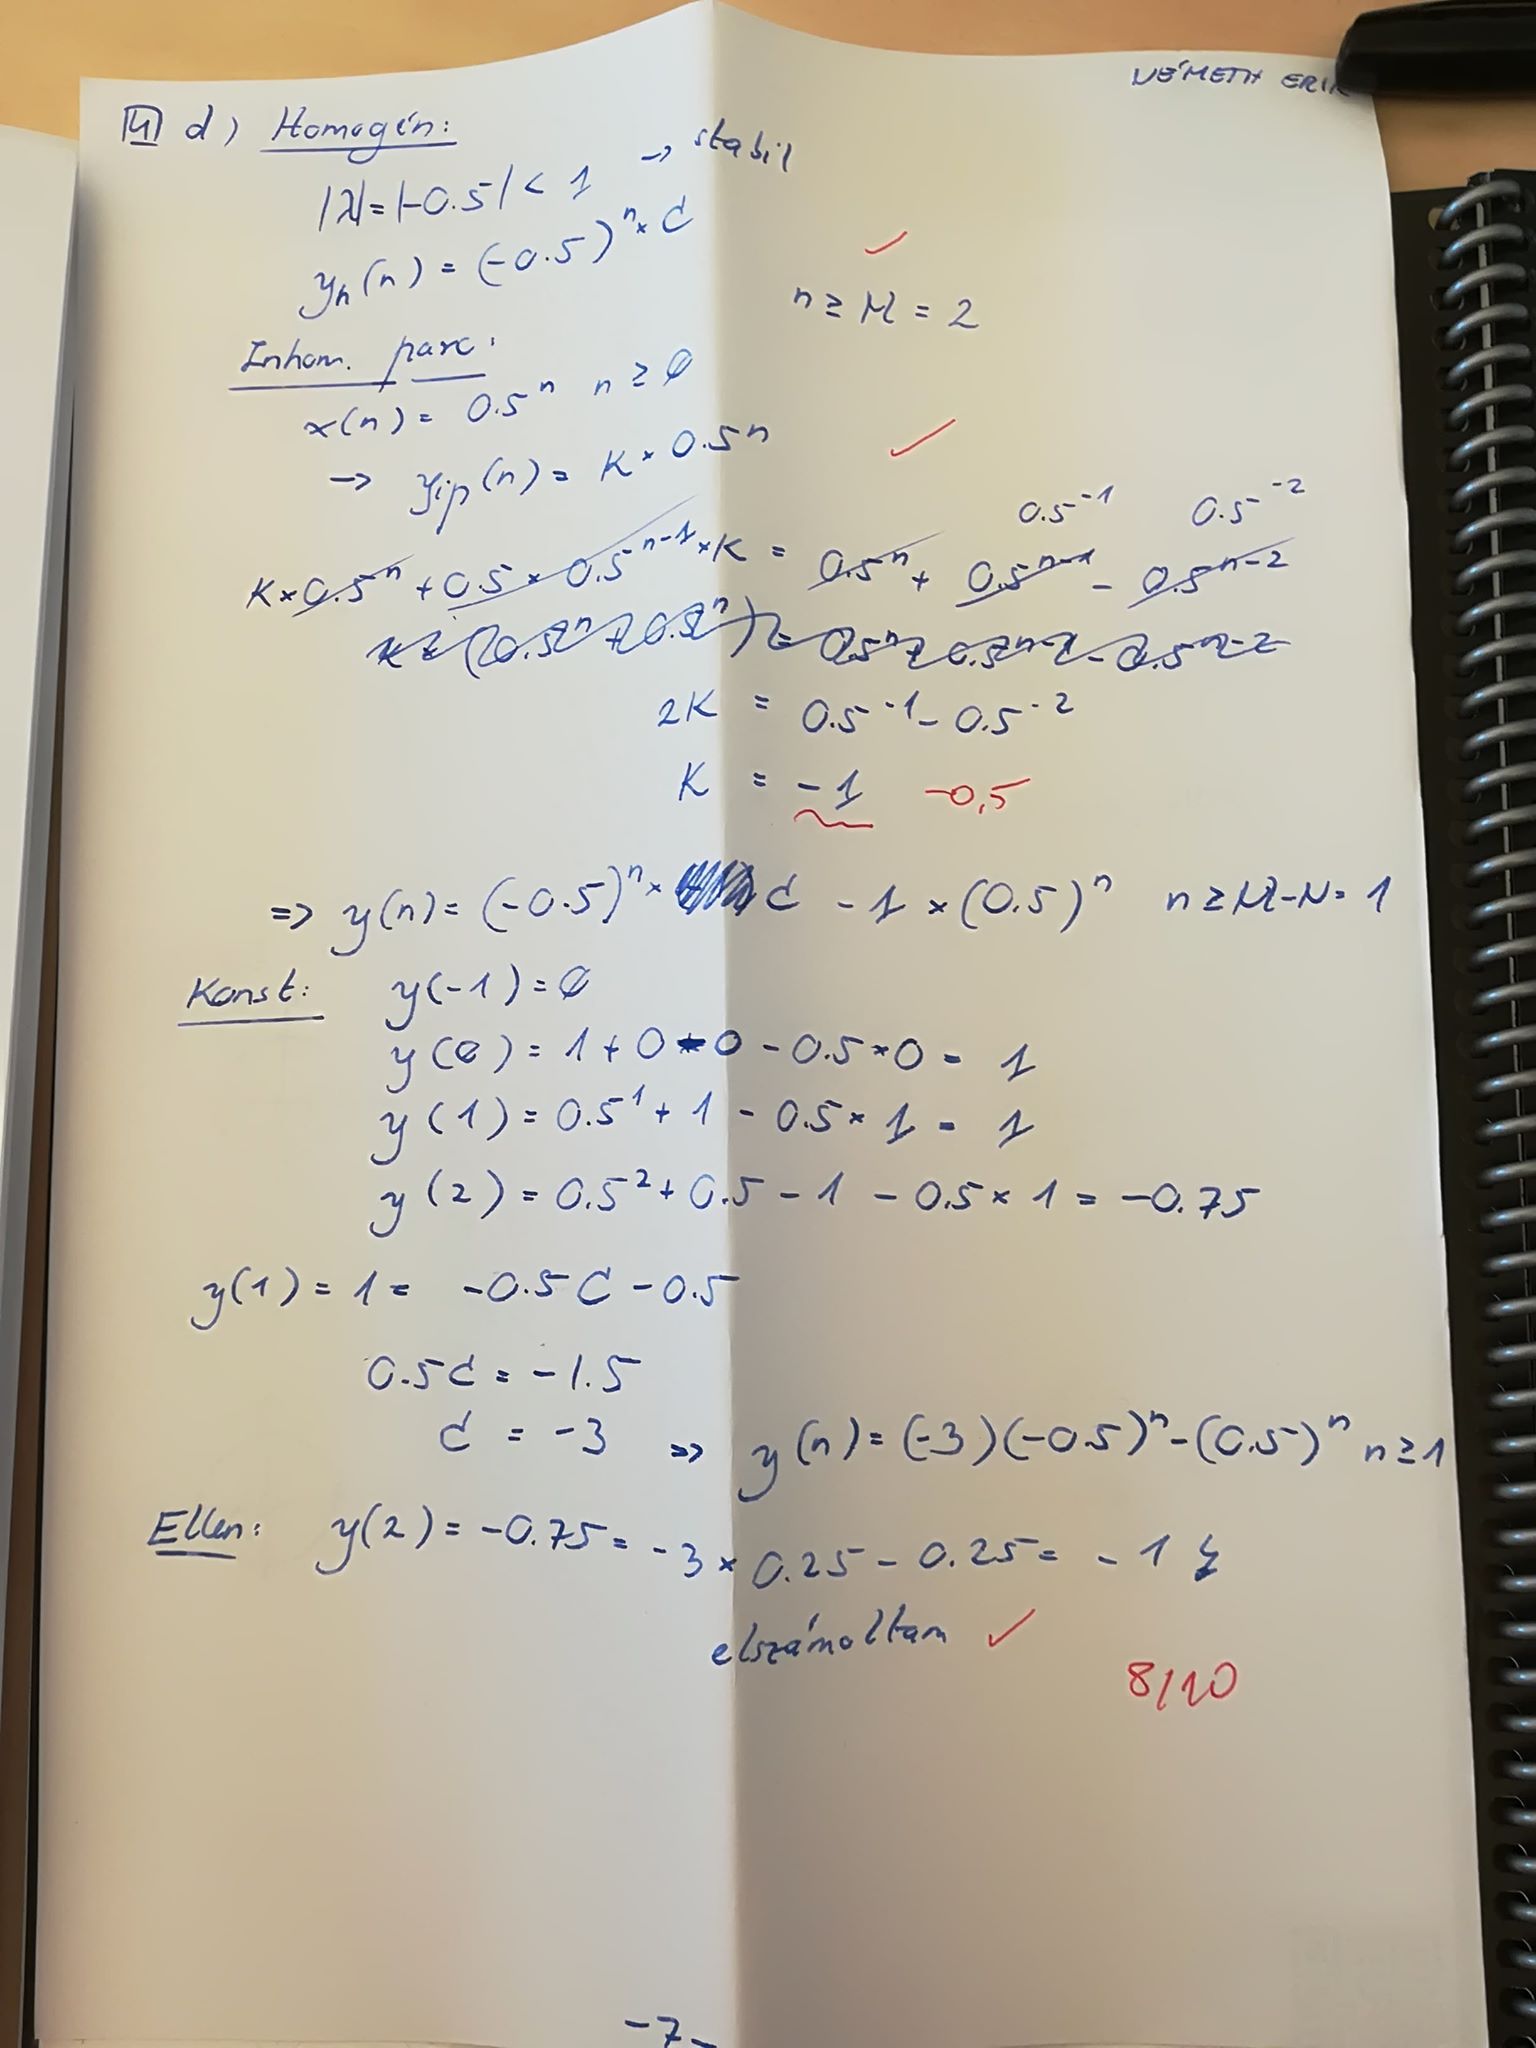 NÉMETH ERIK
4 d) Homogén:
|λ|=|-0.5|< 1 → stabil
yh(n) = (-0.5)^n × C ✓
n ≥ M = 2
Inhom. parc:
x(n) = 0.5^n n ≥ 0
→ yip(n) = K × 0.5^n ✓
0.5^-1 0.5^-2
K × 0.5^n + 0.5 × 0.5^n-1 × K = 0.5^n + 0.5^n-1 - 0.5^n-2
2K = 0.5^-1 - 0.5^-2
K = -1 -0,5
=> y(n) = (-0.5)^n × C - 1 × (0.5)^n n ≥ M-N = 1
Konst: y(-1) = 0
y(0) = 1 + 0 - 0 - 0.5 × 0 = 1
y(1) = 0.5^1 + 1 - 0.5 × 1 = 1
y(2) = 0.5^2 + 0.5 - 1 - 0.5 × 1 = -0.75
y(1) = 1 = -0.5C - 0.5
0.5C = -1.5
C = -3 => y(n) = (-3)(-0.5)^n - (0.5)^n n ≥ 1
Ellen: y(2) = -0.75 = -3 × 0.25 - 0.25 = -1 ↯
elszámoltam ✓
8/10
-7-